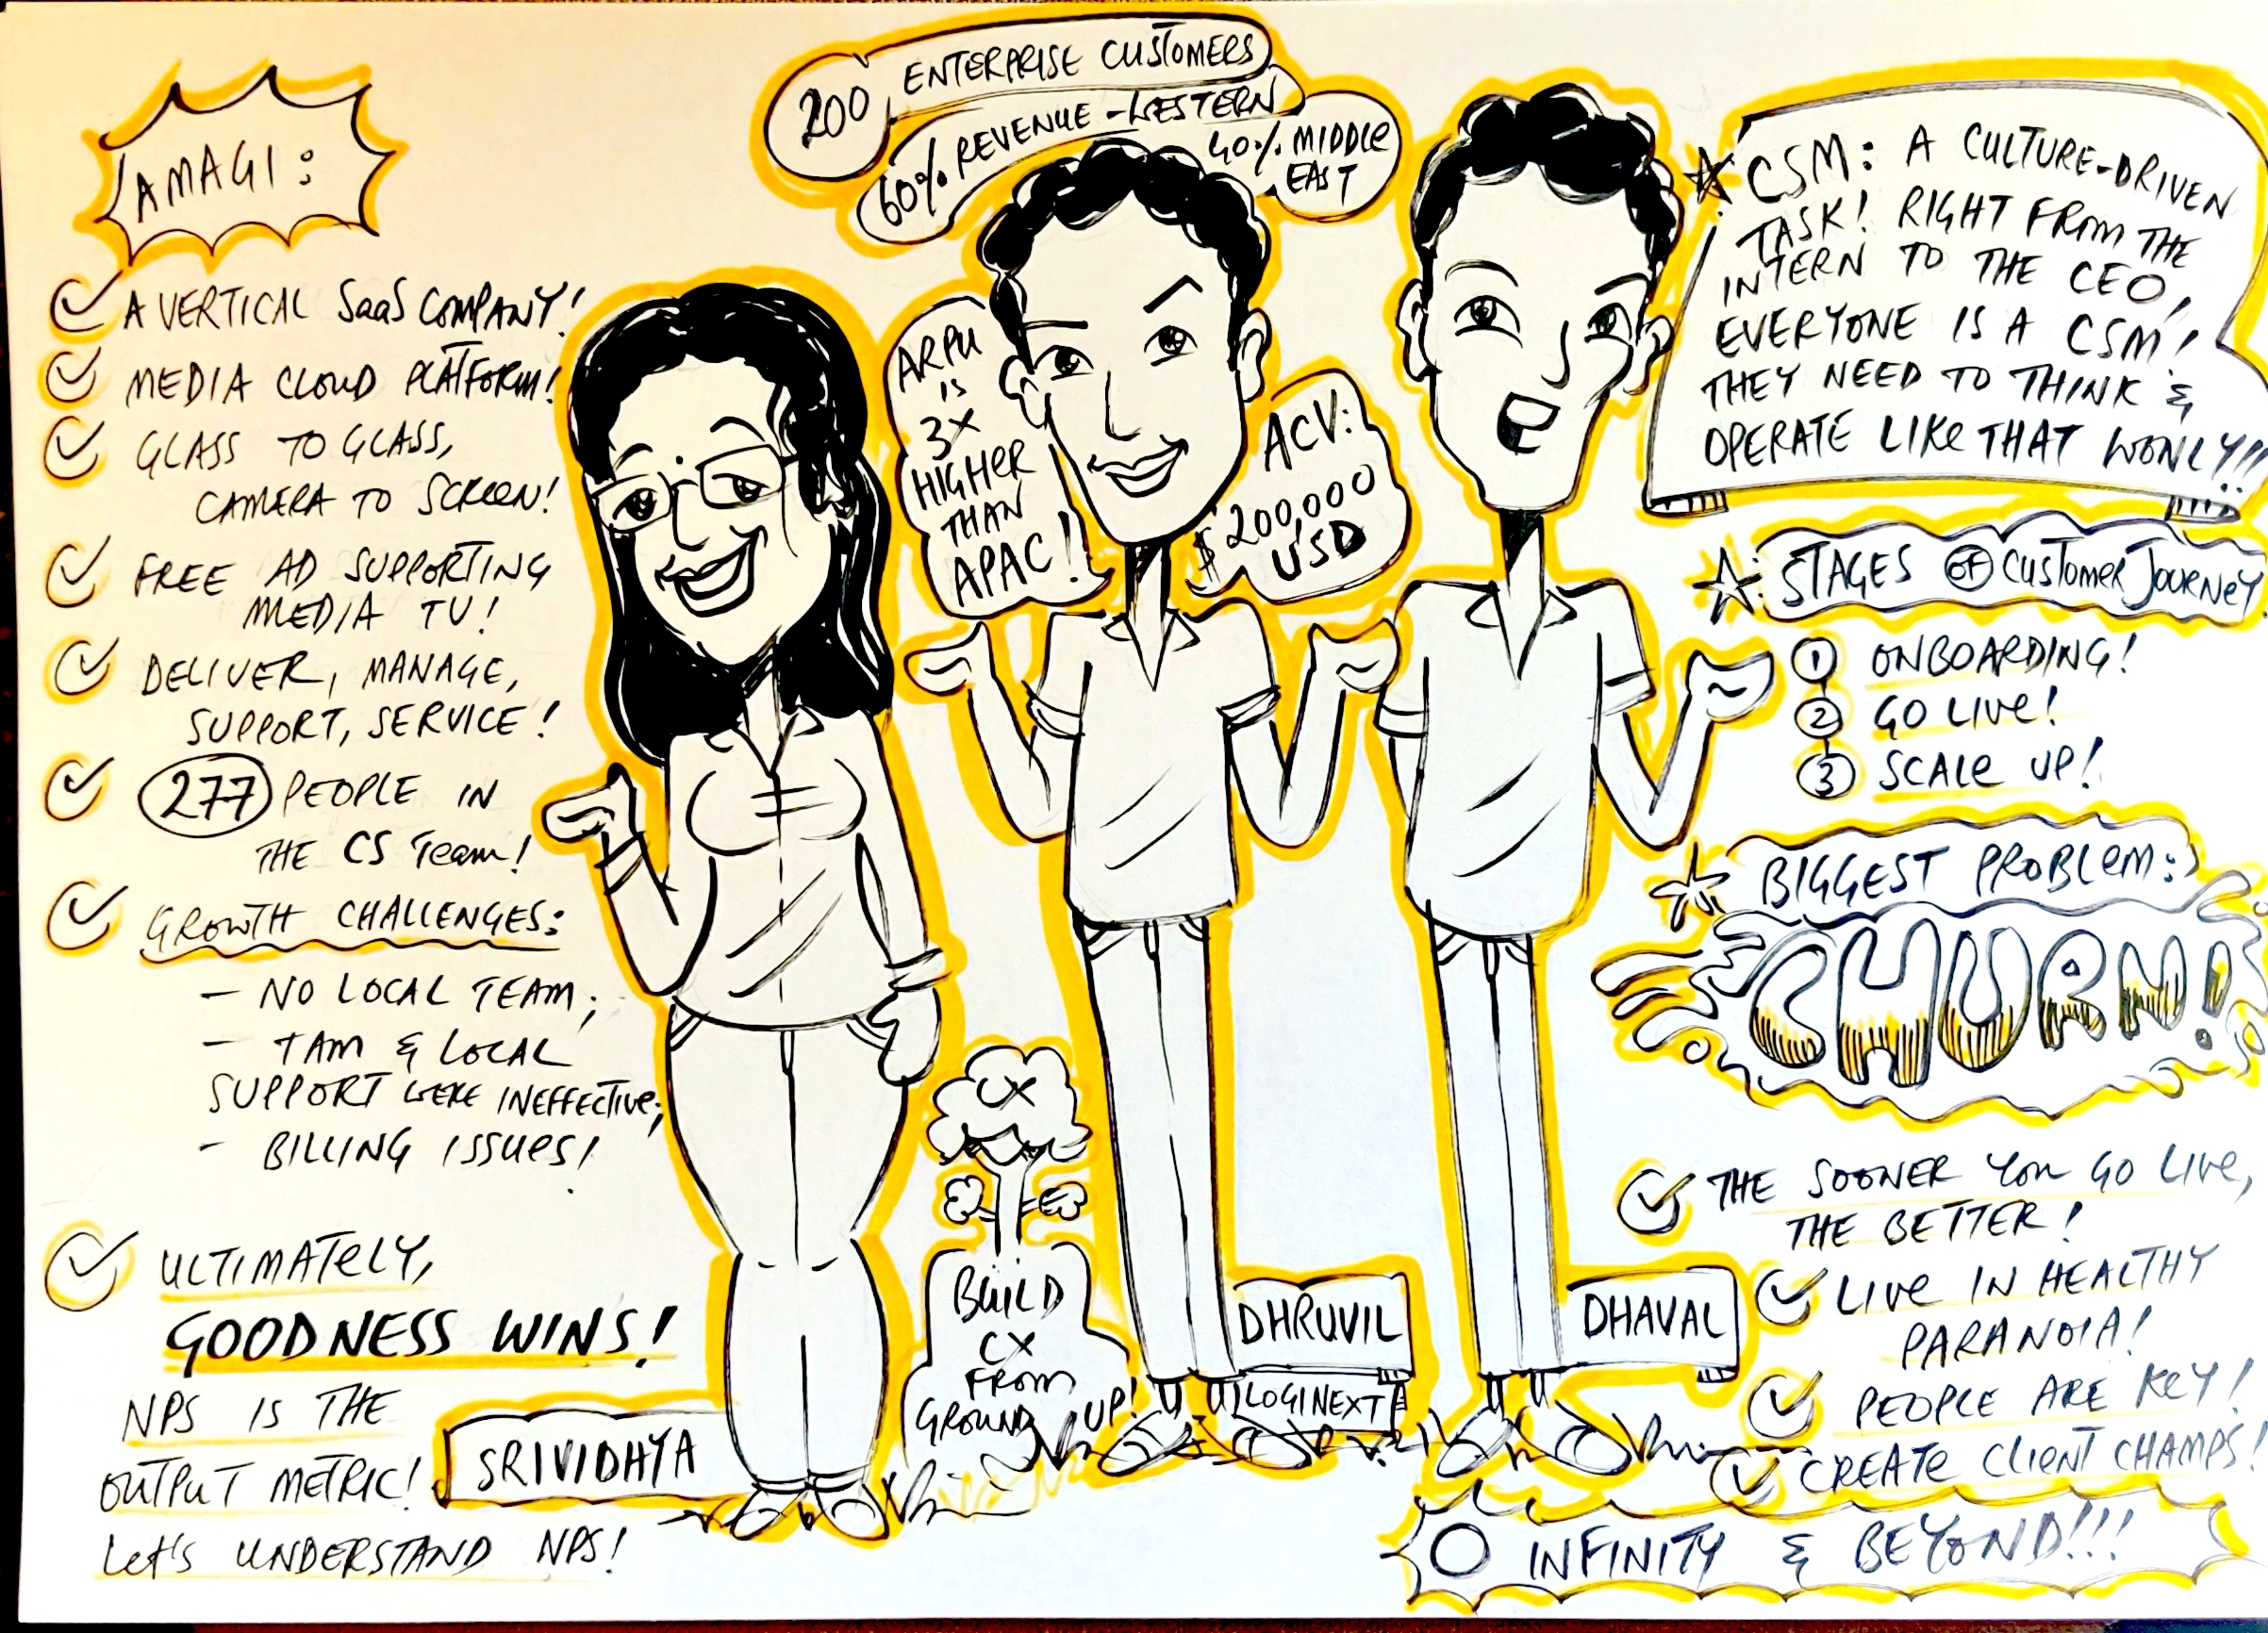 AMAGI:
A VERTICAL SaaS COMPANY!
MEDIA CLOUD PLATFORM!
GLASS TO GLASS,
CAMERA TO SCREEN!
FREE AD SUPPORTING
MEDIA TV!
DELIVER, MANAGE,
SUPPORT, SERVICE!
277 PEOPLE IN
THE CS Team!
GROWTH CHALLENGES:
- NO LOCAL TEAM;
- TAM & LOCAL
SUPPORT WERE INEFFECTIVE;
- BILLING ISSUES!
ULTIMATELY,
GOODNESS WINS!
NPS IS THE
OUTPUT METRIC!
Let's UNDERSTAND NPS!
SRIVIDHYA
CX
BUILD
CX
FROM
GROUND UP!
200 ENTERPRISE CUSTOMERS
60% REVENUE - WESTERN
40% MIDDLE
EAST
ARPU
IS
3X
HIGHER
THAN
APAC!
ACV:
$200,000
USD
DHRUVIL
LOGINEXT
DHAVAL
CSM: A CULTURE-DRIVEN
TASK! RIGHT FROM THE
INTERN TO THE CEO,
EVERYONE IS A CSM!
THEY NEED TO THINK &
OPERATE LIKE THAT WONLY!!!
STAGES OF CUSTOMER JOURNEY
1 ONBOARDING!
2 GO LIVE!
3 SCALE UP!
BIGGEST PROBLEM:
CHURN!
THE SOONER YOU GO LIVE,
THE BETTER!
LIVE IN HEALTHY
PARANOIA!
PEOPLE ARE KEY!
CREATE CLIENT CHAMPS!
INFINITY & BEYOND!!!